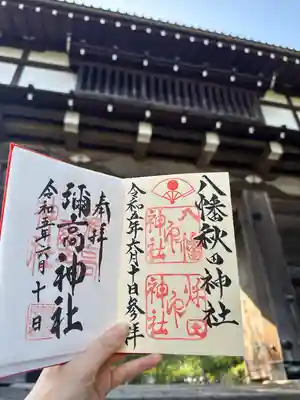 八幡秋田神社
八幡
神社印
秋田
神社印
令和五年六月十日参拝
奉拝
彌高神社
令和五年六月十日